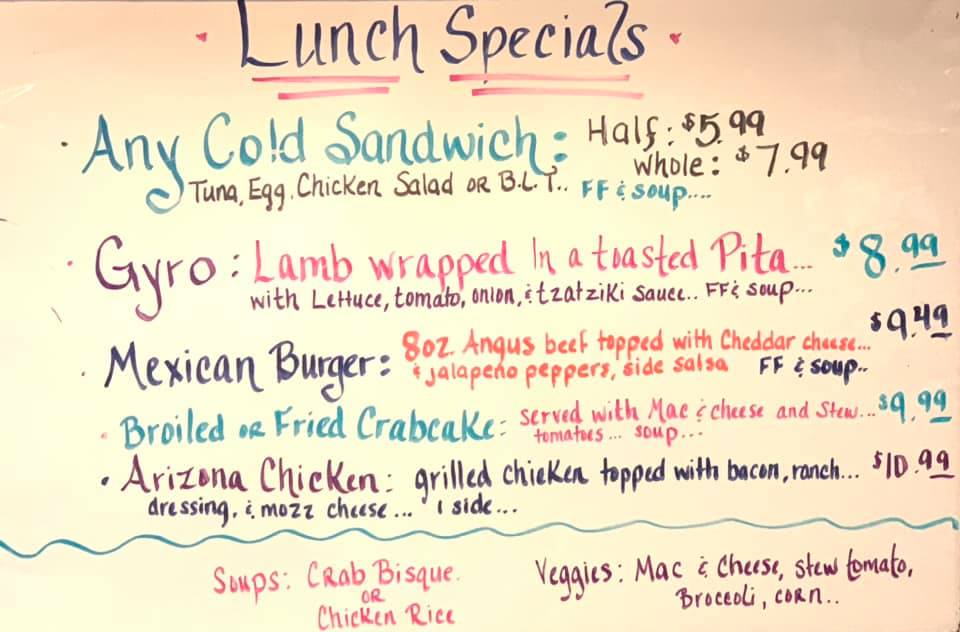 Lunch Specials
· Any Cold Sandwich: Half: $5.99
Whole: $7.99
Tuna, Egg. Chicken Salad OR B.L.T.. FF & soup....
· Gyro: Lamb wrapped In a toasted Pita... $8.99
with Lettuce, tomato, onion, & tzatziki sauce.. FF & soup...
· Mexican Burger: 8oz. Angus beef topped with Cheddar cheese... $9.49
& jalapeño peppers, side salsa FF & soup..
· Broiled OR Fried Crabcake: served with Mac & cheese and Stew... $9.99
tomatoes... soup...
· Arizona Chicken: grilled chicken topped with bacon, ranch... $10.99
dressing, & mozz cheese... 1 side...
Soups: Crab Bisque.
OR
Chicken Rice
Veggies: Mac & Cheese, stew tomato,
Broccoli, corn..